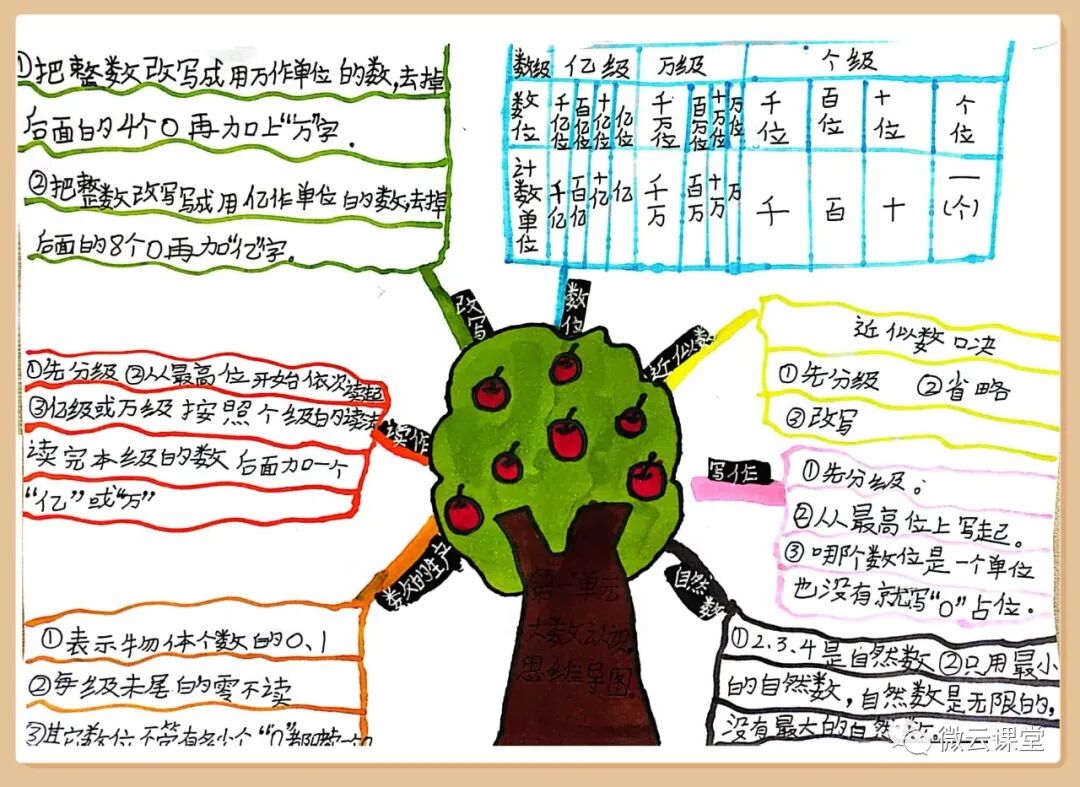 ①把整数改写成用万作单位的数,去掉
后面的4个0再加上“万”字.
②把整数改写写成用亿作单位的数,去掉
后面的8个0再加“亿”字。
数级 亿级 万级 个级
数位 千亿位 百亿位 十亿位 亿位 千万位 百万位 十万位 万位 千位 百位 十位 个位
计数单位 千亿 百亿 十亿 亿 千万 百万 十万 万 千 百 十 一(个)
改写
数位
近似数
近似数口决
①先分级 ②省略
③改写
①先分级 ②从最高位开始依次读起
③亿级或万级按照个级的读法
读完本级的数后面加一个
“亿”或“万”
读作
写作
①先分级:
②从最高位上写起。
③哪个数位是一个单位
也没有就写“0”占位.
数的
①表示物体个数的0、1
②每级末尾的零不读
③其它数位不管有多少个“0”都
自然数
①2.3.4是自然数②只用最小
的自然数,自然数是无限的,
没有最大的自然
第一单元
大数认识
思维导图.
微云课堂